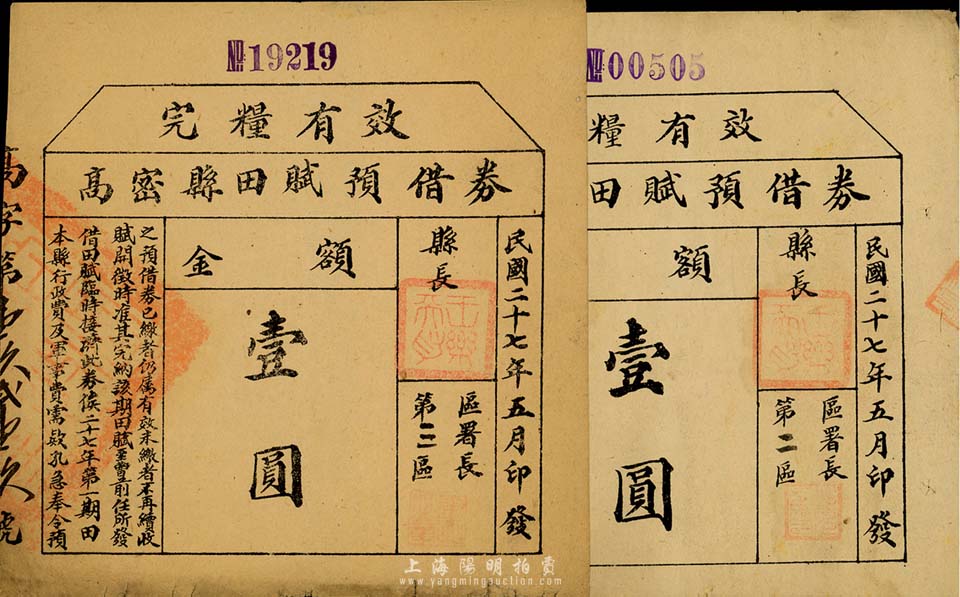 № 19219
完糧有效
高密縣田賦預借券
金額
壹圓
縣長
區署長
第二區
民國二十七年五月印發
本縣行政費及軍事費需款孔急奉令預
借田賦臨時接濟此券俟二十七年第一期田
賦開徵時准其完納該期田賦至曹前任所發
之預借券已繳者仍屬有效未繳者不再續收
高字第
號
№ 00505
糧有效
田賦預借券
額
壹圓
縣長
區署長
第二區
民國二十七年五月印發
上海陽明拍賣
www.yangmingauction.com